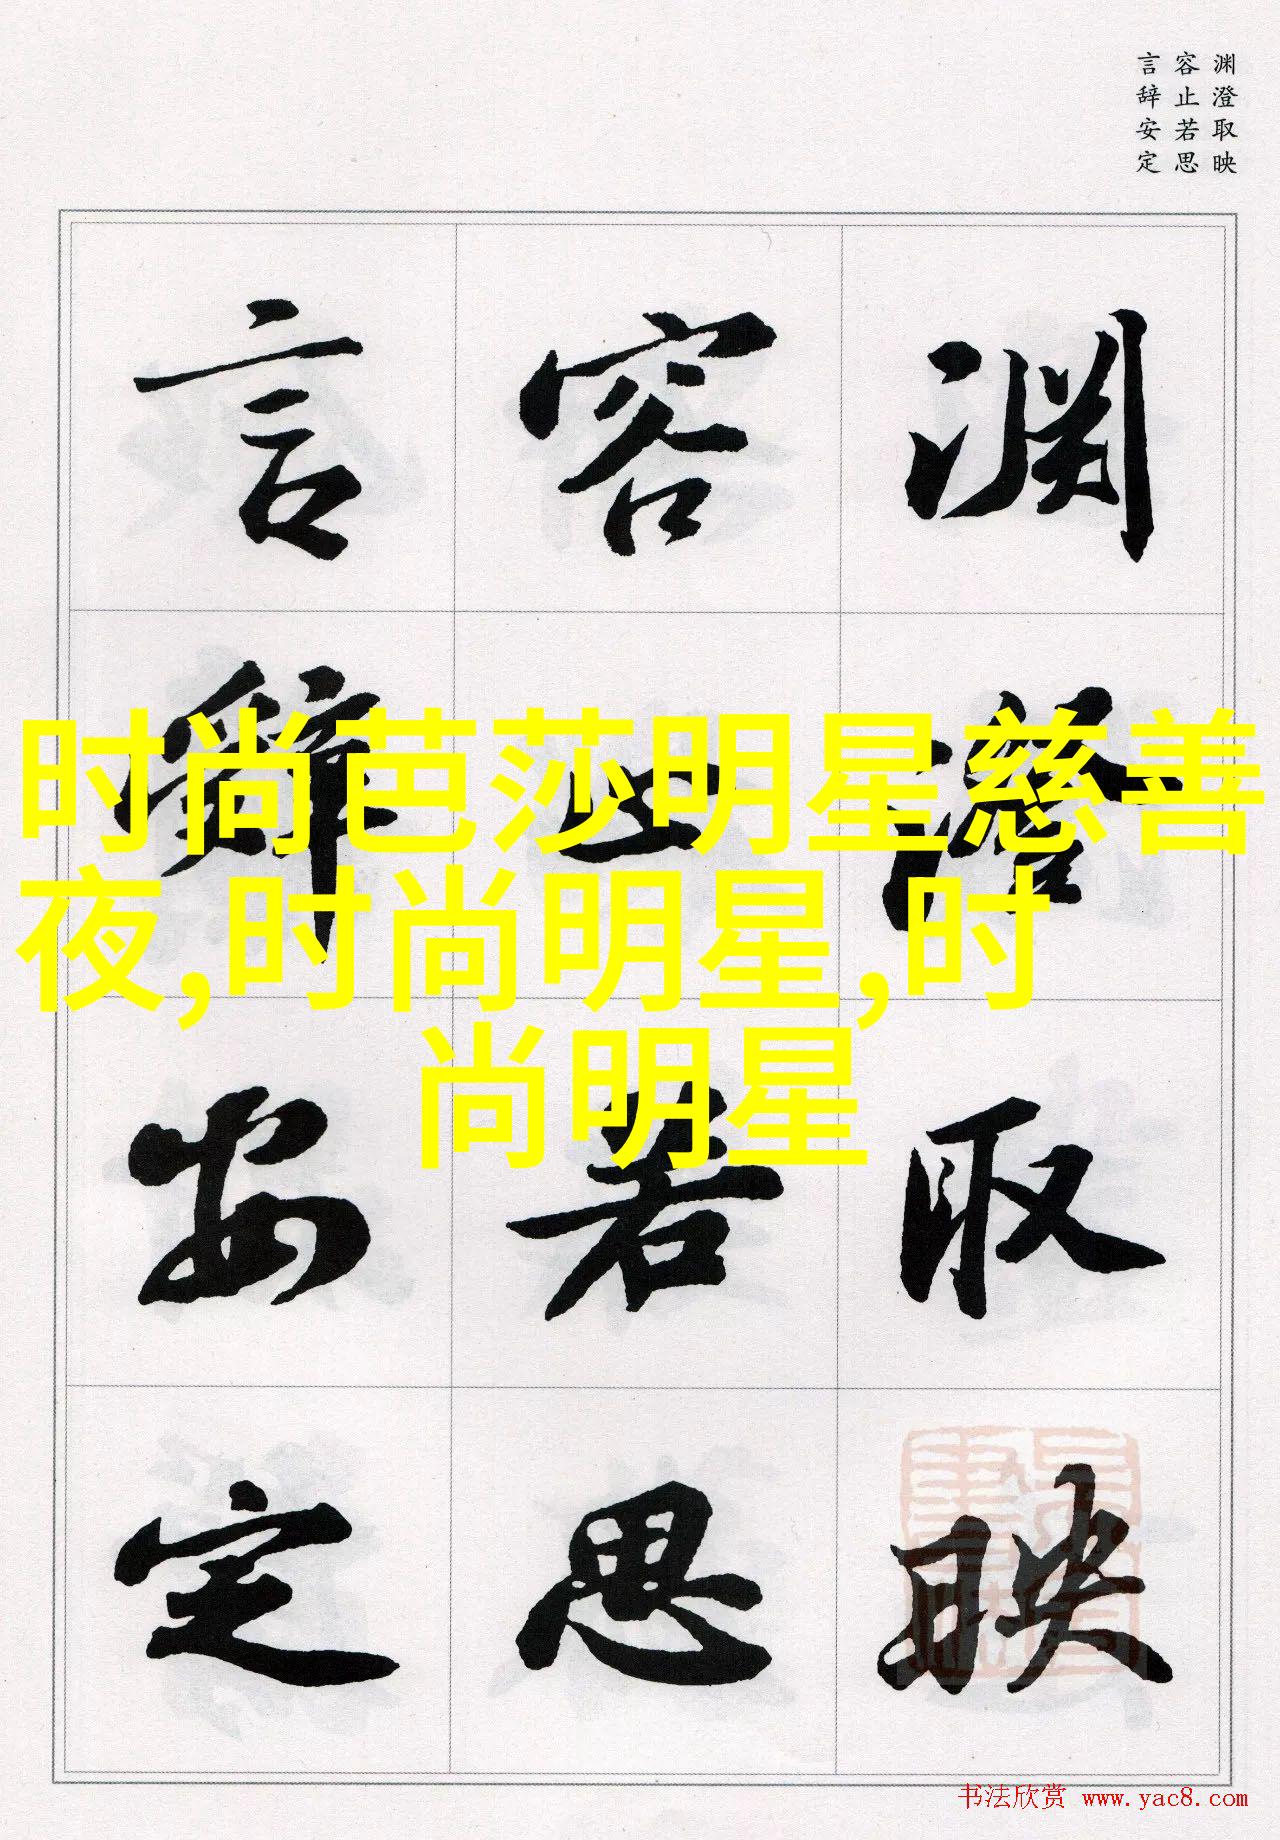 渊澄取映
容止若思
言辞安定
渊澄取映
容止若思
言辞安定
时尚芭莎明星慈善
夜,时尚明星,时
尚明星
书法欣赏 www.yac8.com